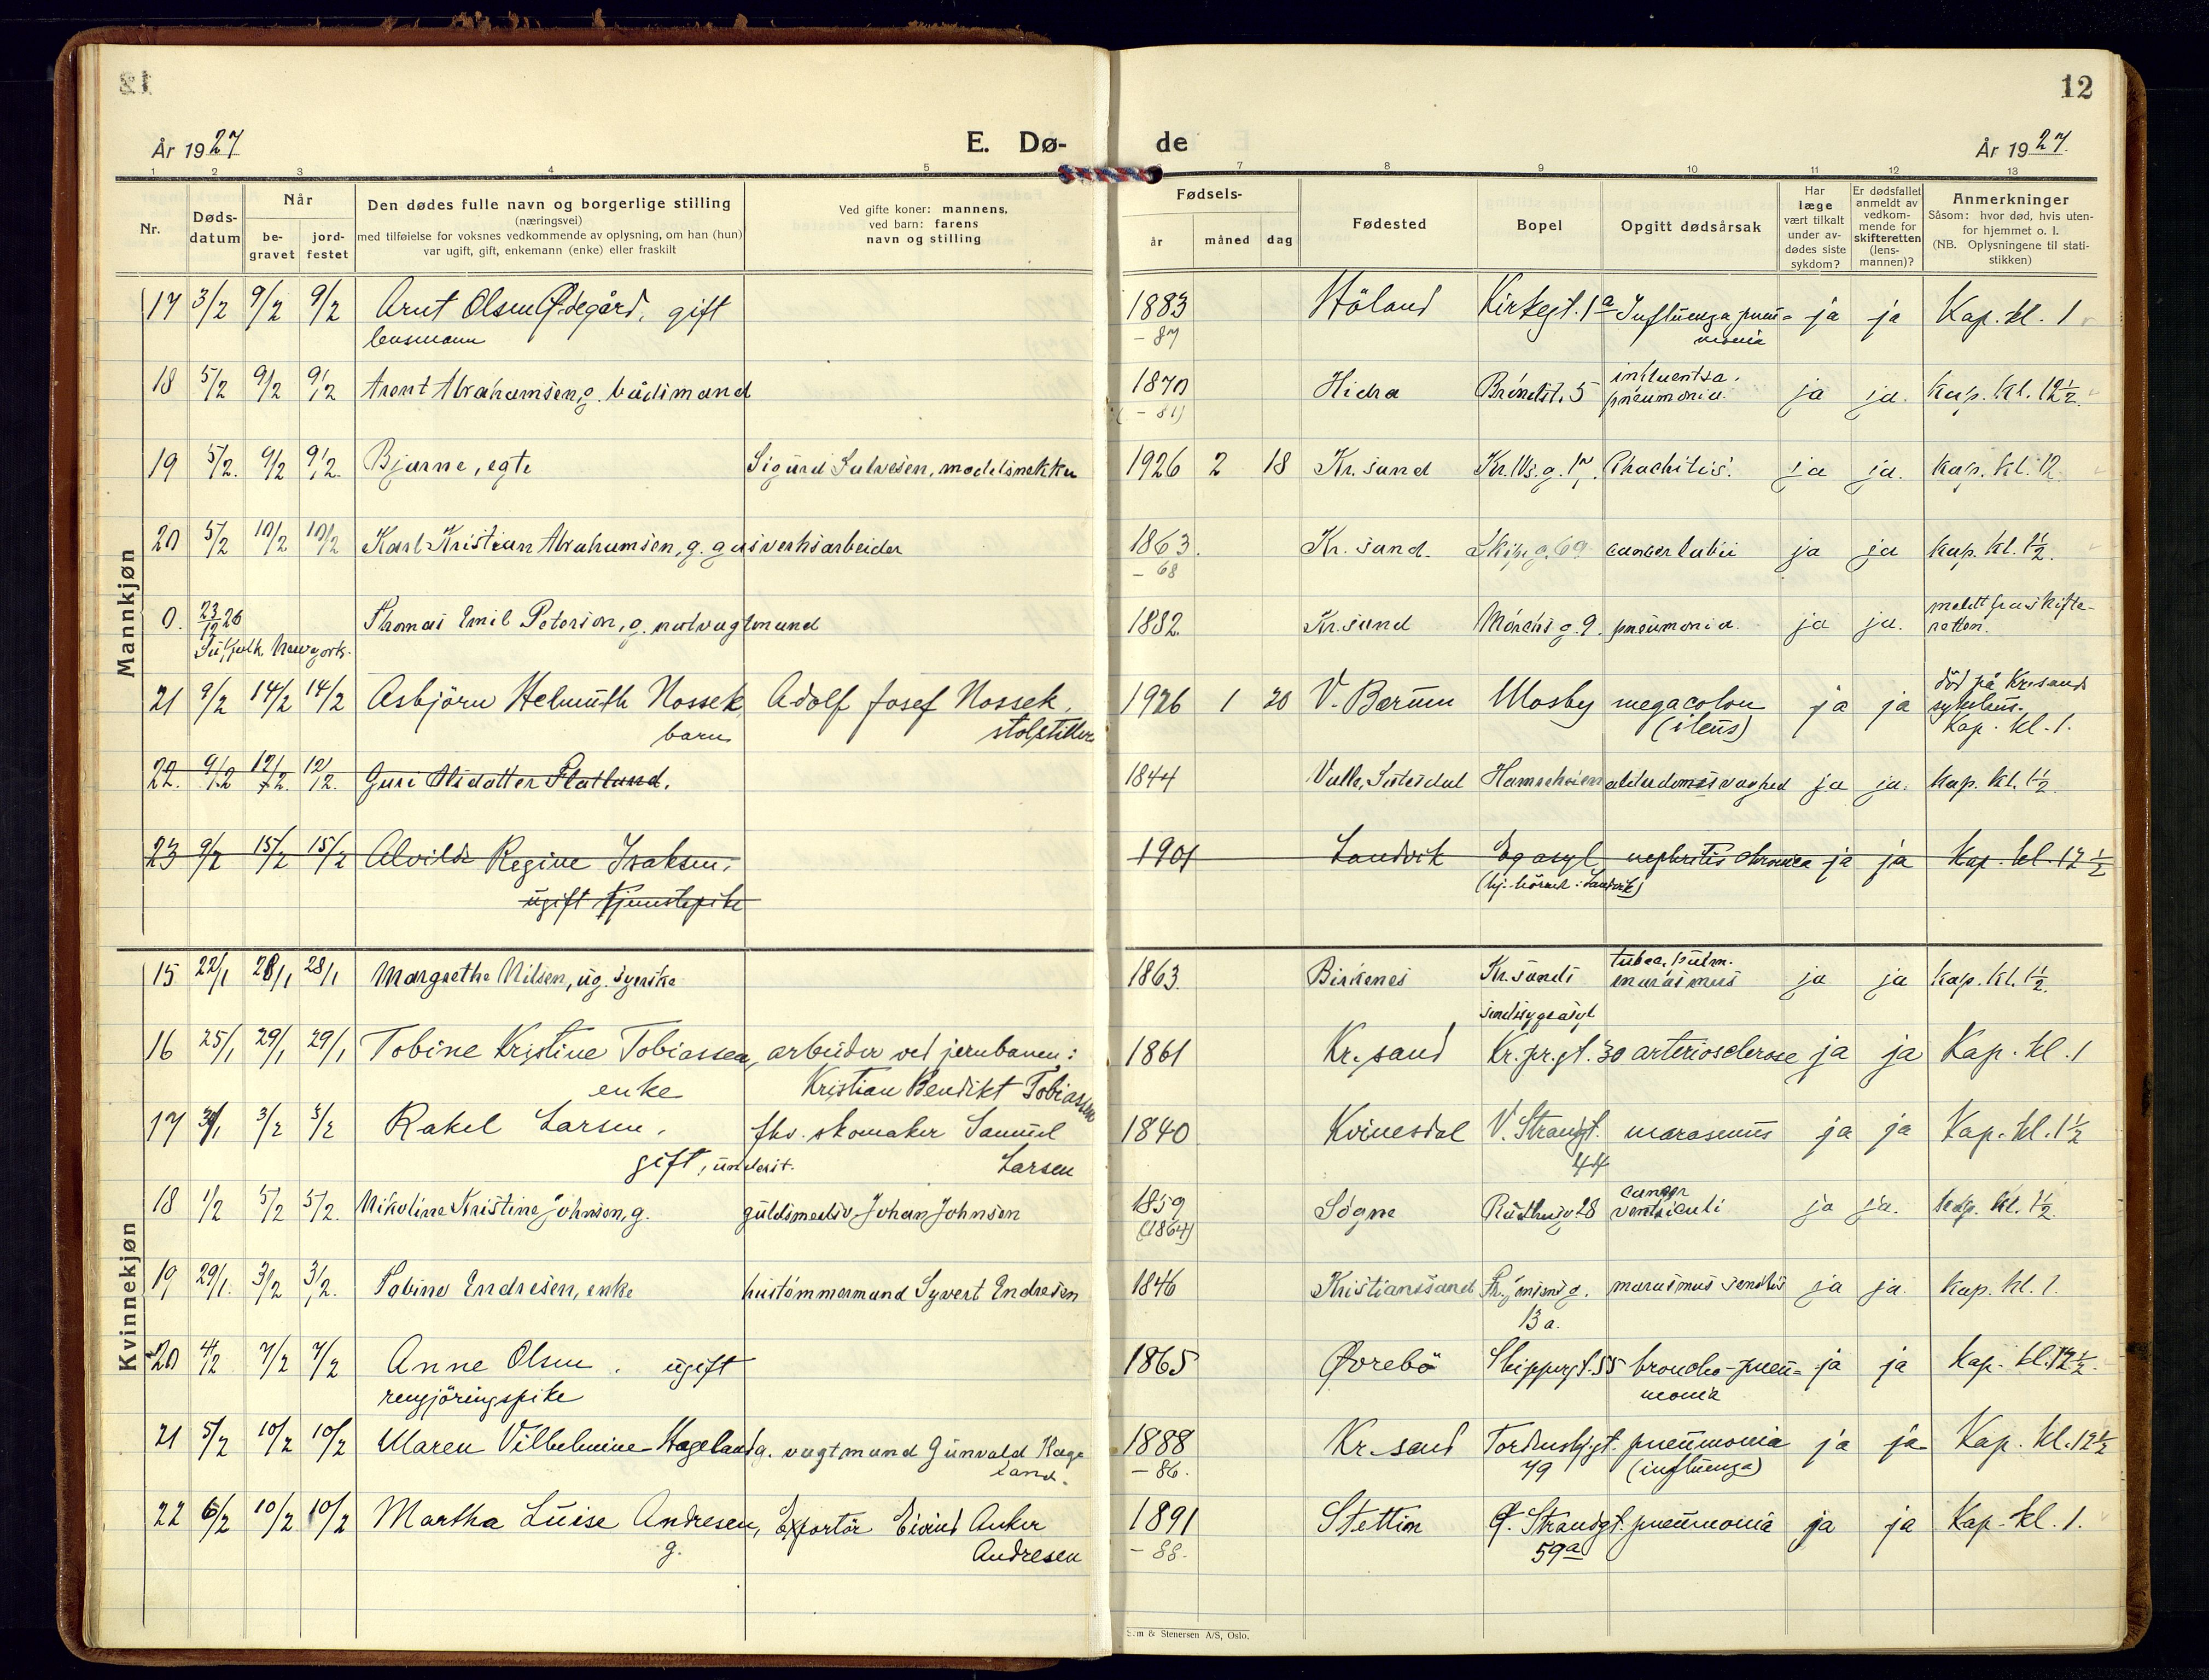 12
År 1927
E. Dø-
de
År 1927.
1 2 3 4 5 7 8 9 10 11 12 13
Nr.
Døds-
datum
Når
be-
gravet
jord-
festet
Den dødes fulle navn og borgerlige stilling
(næringsvei)
med tilføielse for voksnes vedkommende av oplysning, om han (hun)
var ugift, gift, enkemann (enke) eller fraskilt
Ved gifte koner: mannens,
ved barn: farens
navn og stilling
Fødsels-
år
måned
dag
Fødested
Bopel
Opgitt dødsårsak
Har
læge
vært tilkalt
under av-
dødes siste
sykdom?
Er dødsfallet
anmeldt av
vedkom-
mende for
skifteretten
(lens-
mannen)?
Anmerkninger
Såsom: hvor død, hvis uten-
for hjemmet o. l.
(NB. Oplysningene til stati-
stikken)
Mannkjøn
17 3/2 9/2 9/2 Arnt Olsen Ødegård, gift 1883 Höland Kirkegt. 1a Influenza pneu- ja ja Kap. kl. 1
lensmann -87 monia
18 5/2 9/2 9/2 Arent Abrahamsen, g. bådsmand 1870 Hidra 5 influentsa. ja ja. Kap. kl. 12½.
(-81) pneumonia.
19 5/2. 9/2 9/2. Bjarne, egte Sigurd Salvesen, modelsnekker 1926 2 18 Kr.sand Rachitis. ja ja. Kap. kl. 12.
20 5/2 10/2 10/2 Karl Kristian Abrahamsen, g. gasverksarbeider 1863. Kr.sand. Skip.g. 69 cancer labii ja ja Kap. kl. 1½.
-68
0. 23/12 26 Thomas Emil Peterson, g. natvagtmand 1882. Kr.sand Mörchs g. 9. pneumonia. ja ja. meldt fra skifte-
Suffolk, Newyork. retten.
21 9/2 14/2 14/2 Asbjörn Helmuth Nossek Adolf Josef Nossek, 1926 1 20 V. Bærum Mosby megacolon ja ja död på Kr.sands
barn (ileus) sykehus.
Kap. kl. 1.
22. 9/2 12/2. 12/2. Guri Flatland. 1844 Valle, Setesdal alderdomssvaghed ja ja. Kap. kl. 1½.
23 9/2 15/2 15/2 Alvilde Regine Isaksen, 1901 Landvik nephritis chronica ja ja Kap. kl. 12½
ugift tjenestepike
Kvinnekjøn
15 22/1 28/1 28/1 Margrethe Nilsen, ug. syerske 1863. Birkenes Kr.sands tuberc. pulm. ja ja Kap. kl. 1½.
sindssygeasyl marasmus
16 25/1 29/1 29/1 Tobine Kristine Tobiassen, arbeider ved jernbanen: 1861 Kr.sand Kr.pr.gt. 30 arteriosclerose ja ja Kap. kl. 1
enke Kristian Bendikt Tobiassen
17 31/1 3/2 3/2 Rakel Larsen, fhv. skomaker Samuel 1840 Kvinesdal V. Strandgt. marasmus ja ja Kap. kl. 1½
gift, underst. Larsen 44
18 1/2 5/2 5/2. Nikoline Kristine Johnsen, g. guldsmedsv. Johan Johnsen 1859 Sögne 28 cancer ja ja. Kap. kl. 1½.
(1864) ventriculi
19 29/1. 3/2 3/2. Tobine Endresen, enke hustömmermand Syvert Endresen 1846 Kristianssand marasmus senilis ja ja. Kap. kl. 1.
13 a.
20 4/2 7/2 7/2 Anne Olsen. ugift 1865 Øvrebö Skippergt. 55 broncho-pneu- ja ja Kap. kl. 12½.
rengjöringspike monia
21 5/2 10/2 10/2 Maren Vilhelmine Hageland g. vagtmand Gunvald Hage 1888 Kr.sand pneumonia ja ja Kap. kl. 12½
land. -86. 79 (influenza)
22 6/2 10/2 10/2 Martha Luise Andresen, Exportör Eivind Anker 1891 Stettin Ø. Strandgt. pneumonia ja ja Kap. kl. 1.
g. Andresen -88. 59a
& Stenersen A/S, Oslo.